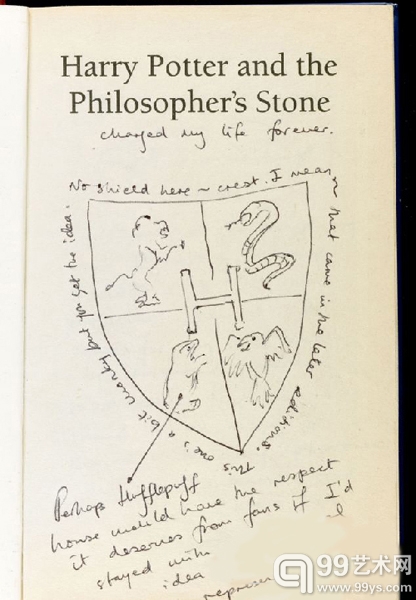 Harry Potter and the
Philosopher's Stone
changed my life forever.
No shield here ~ crest. I mean ~ that came in the later editions. This one's a bit wonky but you get the idea.
H
Perhaps Hufflepuff
house would have the respect
it deserves from fans if I'd
stayed with
idea
represen
99艺术网
www.99ys.com